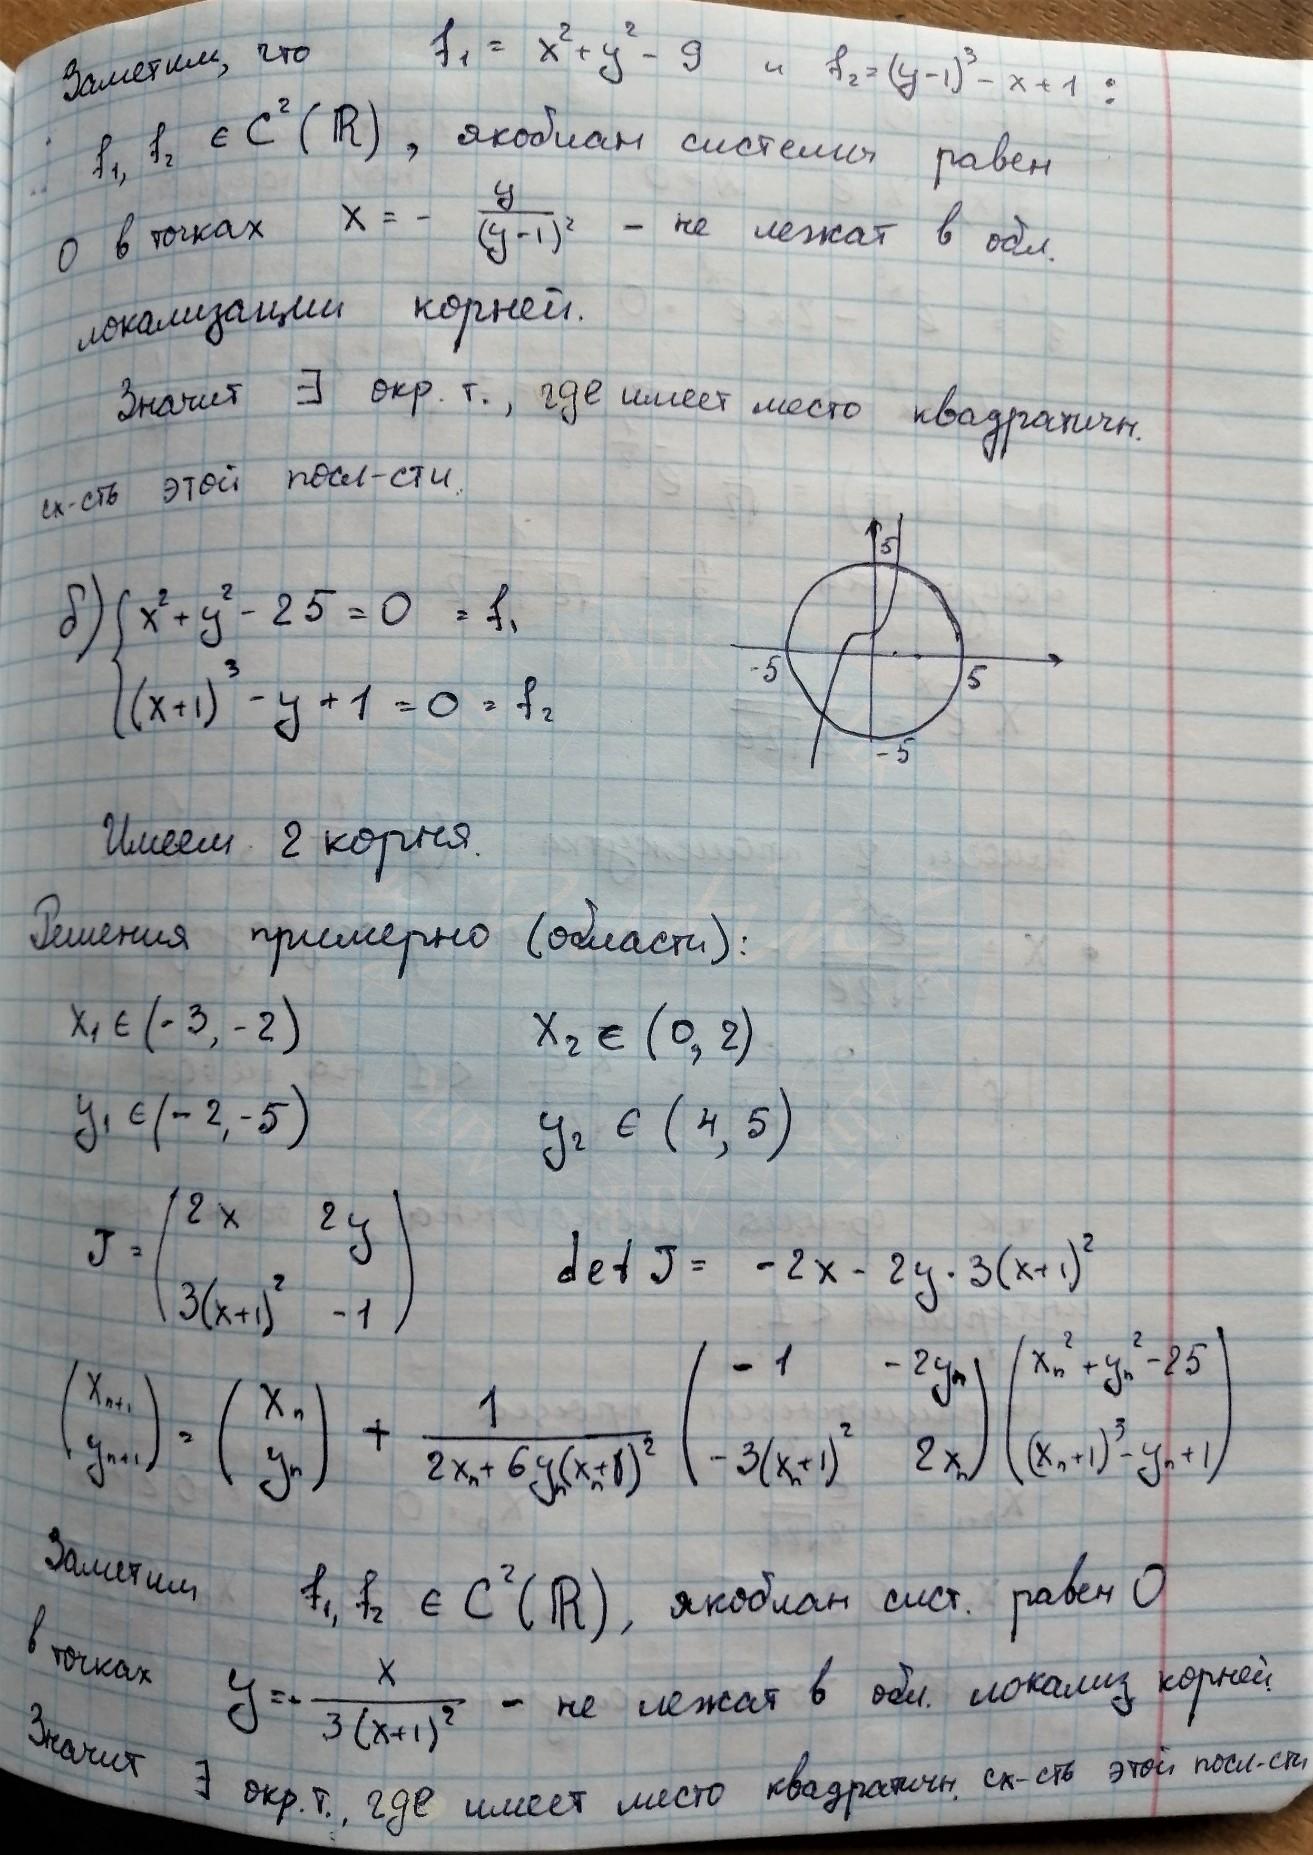 Заметим, что f₁ = x² + y² - 9 и f₂ = (y-1)³ - x + 1 :
f₁, f₂ ∈ C²(ℝ), якобиан системы равен
0 в точках x = - y/(y-1)² - не лежат в обл.
локализации корней.
Значит ∃ окр. т., где имеет место квадратичн.
сх-сть этой посл-сти.
б) { x² + y² - 25 = 0 = f₁
(x+1)³ - y + 1 = 0 = f₂
5
-5
5
-5
Имеем 2 корня.
Решения примерно (области):
x₁ ∈ (-3, -2) x₂ ∈ (0, 2)
y₁ ∈ (-2, -5) y₂ ∈ (4, 5)
J = (2x 2y; 3(x+1)² -1) det J = -2x - 2y · 3(x+1)²
(xₙ₊₁; yₙ₊₁) = (xₙ; yₙ) + 1/(2xₙ + 6yₙ(xₙ+1)²) (-1 -2yₙ; -3(xₙ+1)² 2xₙ) (xₙ² + yₙ² - 25; (xₙ+1)³ - yₙ + 1)
Заметим f₁, f₂ ∈ C²(ℝ), якобиан сист. равен 0
в точках y = - x/(3(x+1)²) - не лежат в обл. локализ корней.
Значит ∃ окр. т., где имеет место квадратичн. сх-сть этой посл-сти